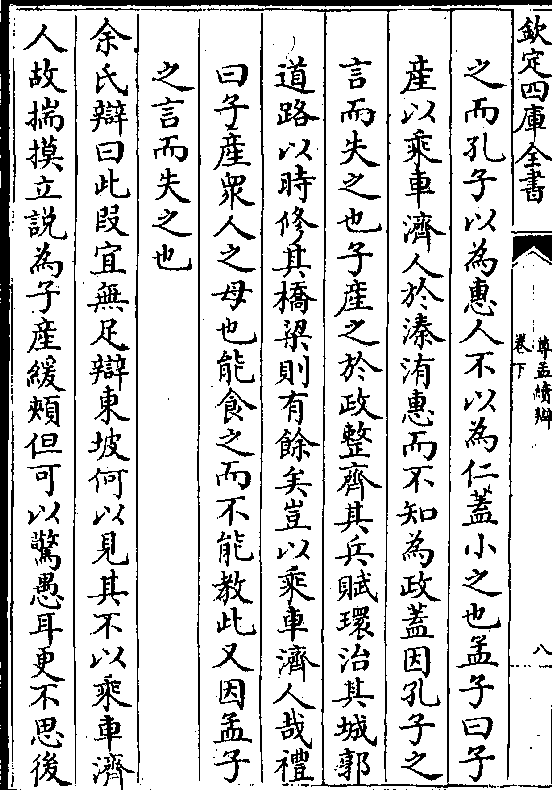 欽定四庫全書
尊孟續辨
卷下
八
之而孔子以為惠人不以為仁蓋小之也孟子曰子
產以乘車濟人於溱洧惠而不知為政蓋因孔子之
言而失之也子產之於政整齊其兵賦環治其城郭
道路以時修其橋梁則有餘矣豈以乘車濟人哉禮
曰子產衆人之母也能食之而不能教此又因孟子
之言而失之也
余氏辯曰此段宜無足辯東坡何以見其不以乘車濟
人故揣摸立說為子產緩頰但可以驚愚耳更不思後